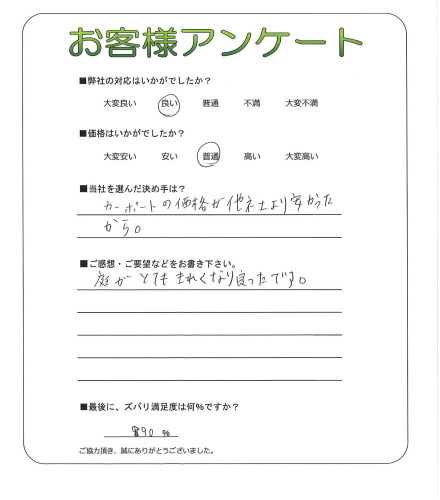 お客様アンケート
■弊社の対応はいかがでしたか？
大変良い 良い 普通 不満 大変不満
■価格はいかがでしたか？
大変安い 安い 普通 高い 大変高い
■当社を選んだ決め手は？
カーポートの価格が他社より安かった
から。
■ご感想・ご要望などをお書き下さい。
庭がとてもきれくなり良ったです。
■最後に、ズバリ満足度は何％ですか？
90 %
ご協力頂き、誠にありがとうございました。